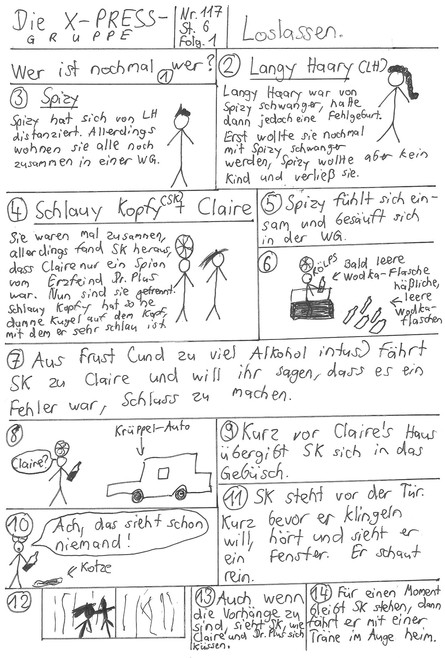 Die X-PRESS-
GRUPPE
Nr. 117
St. 6
Folg. 1
Loslassen.
Wer ist nochmal wer?
①
② Langy Haary (LH)
Langy Haary war von
Spizy schwanger, hatte
dann jedoch eine Fehlgeburt.
Erst wollte sie nochmal
mit Spizy schwanger
werden, Spizy wollte aber kein
Kind und verließ sie.
③ Spizy
Spizy hat sich von LH
distanziert. Allerdings
wohnen sie alle noch
zusammen in einer WG.
④ Schlauy Kopfy (SK) + Claire
Sie waren mal zusammen,
allerdings fand SK heraus,
dass Claire nur ein Spion
vom Erzfeind Dr. Plus
war. Nun sind sie getrennt.
Schlauy Kopfy hat so ne
dumme Kugel auf dem Kopf,
mit dem er sehr schlau ist.
⑤ Spizy fühlt sich ein-
sam und besäuft sich
in der WG.
⑥
RÜLPS
Bald leere
Wodka-Flasche
häßliche,
leere
Wodka-
flaschen
⑦ Aus Frust (und zu viel Alkohol intus) fährt
SK zu Claire und will ihr sagen, dass es ein
Fehler war, Schluss zu machen.
⑧
Claire?
Krüppel-Auto
⑨ Kurz vor Claire's Haus
übergibt SK sich in das
Gebüsch.
⑩
Ach, das sieht schon
niemand!
Kotze
⑪ SK steht vor der Tür.
Kurz bevor er klingeln
will, hört und sieht er
ein Fenster. Er schaut
rein.
⑫
⑬ Auch wenn
die Vorhänge zu
sind, sieht SK, wie
Claire und Dr. Plus sich
küssen.
⑭ Für einen Moment
bleibt SK stehen, dann
fährt er mit einer
Träne im Auge heim.